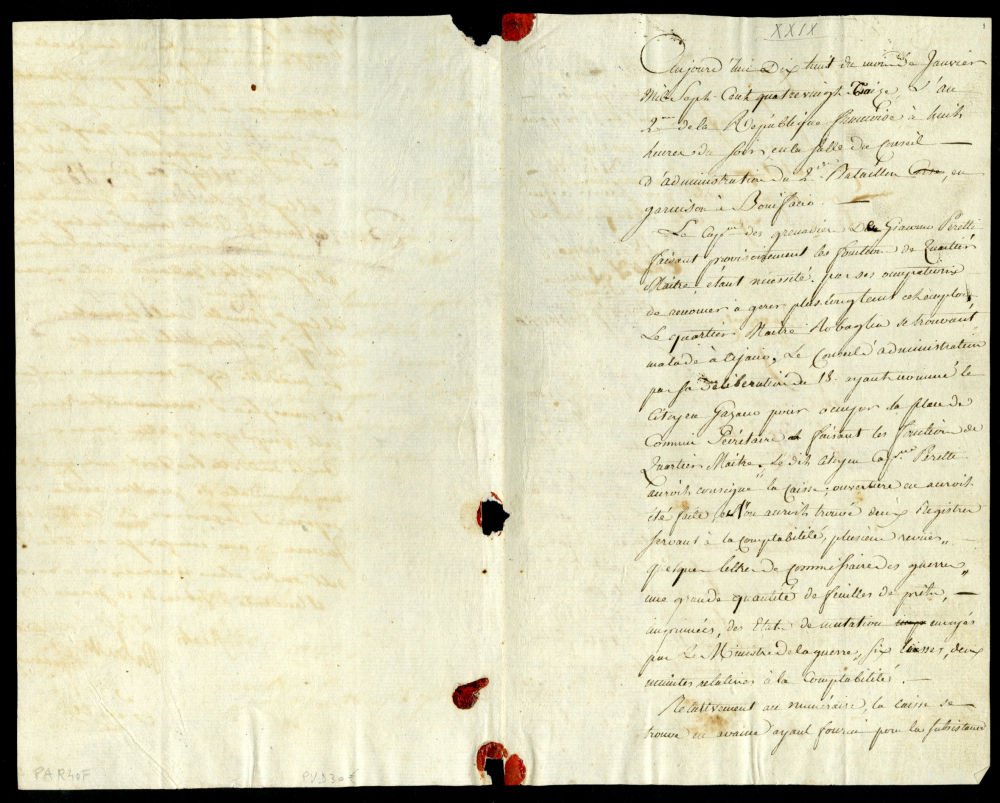 XXIX
Aujourd'hui Dix huit du mois de Janvier
Mil Sept Cent quatrevingt Treize, L'an
2.me de la République francoise à huit
heures du Soir en la Salle du Conseil —
D'administration du 2.me Bataillon Corse, en
garnison à Bonifacio. —
Le Cap.ne des grenadier Giacomo Peretti
faisant provisoirement les fonction de Quartier
Maitre étant necessité par ses occupations
de renoncer à gerer plus longtems cet emploi,
Le quartier Maitre Robaglia se trouvant
malade à Ajacio, Le Conseil d'administration
par Sa Deliberation de 18. ayant nommé le
Citoyen Gazano pour occuper la place de
Commis Secrétaire et faisant les fonction de
Quartier Maitre, Le dit Citoyen Cap.ne Peretti
auroit consigné la Caisse, ouverture en auroit
été faite, et l'on auroit trouvé deux Registres
servant à la comptabilité, plusieurs revues,
quelques lettres de Commissaire des guerres,
une grande quantité de feuilles de prêts, —
des Etats de mutation envoyés
par Le Ministre de la guerre, six liasses, deux
minutes relatives à la Comptabilité. —
Relativement au numéraire, la caisse se
trouve en avance d'ayant fourni pour la subsistance
PAR40F